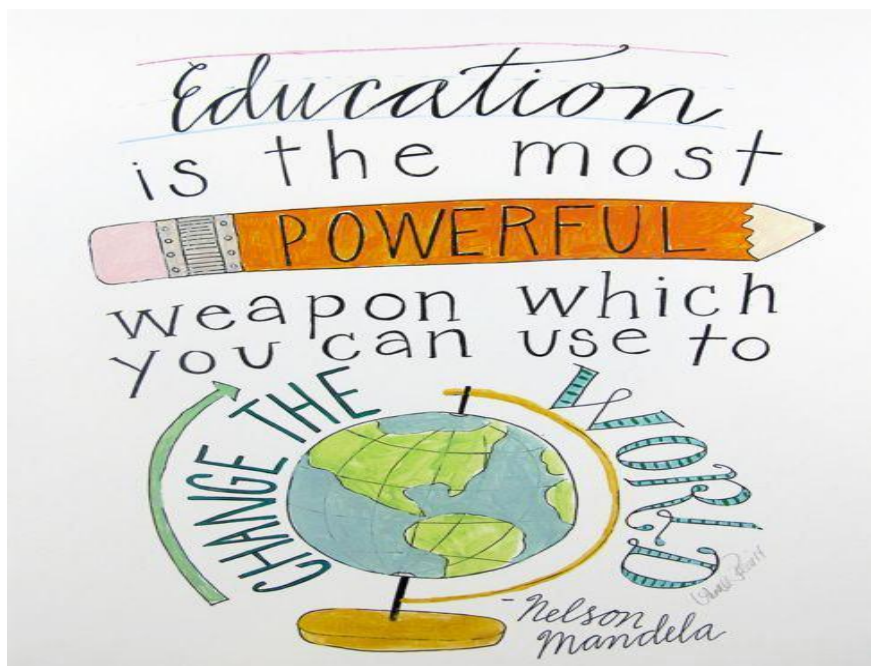 Education
is the most
POWERFUL
weapon which
you can use to
CHANGE THE
WORLD
-Nelson
Mandela